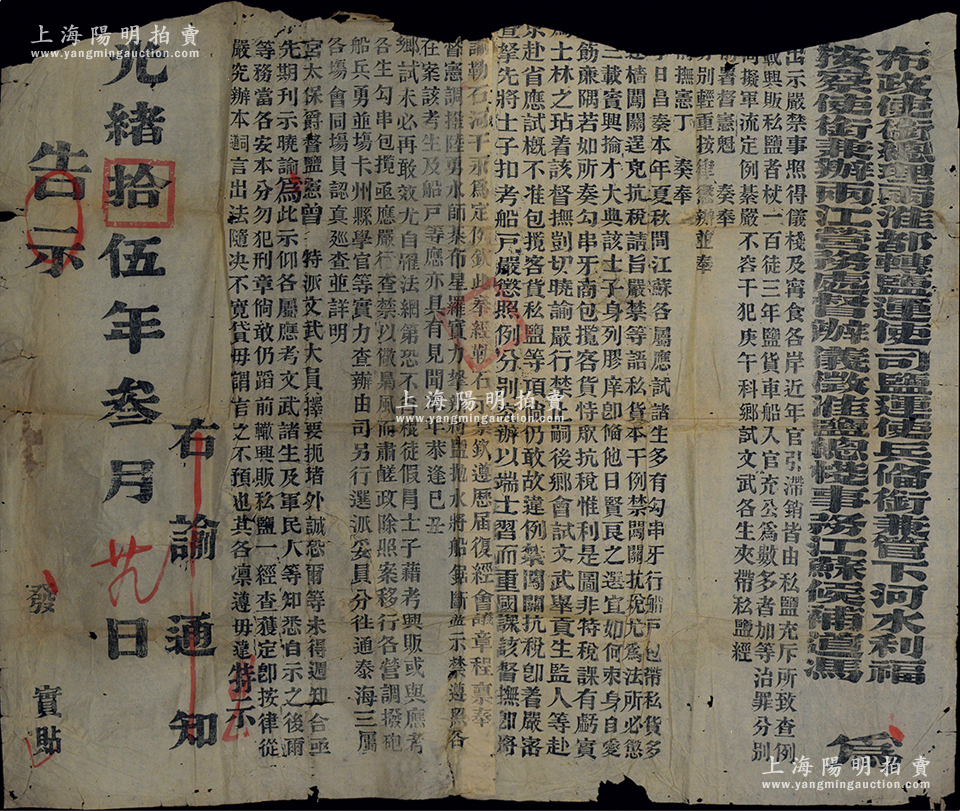 布政使銜總理兩淮都轉鹽運使司鹽運使兵備銜兼管下河水利福
按察使銜兼辦兩江營務處督辦儀徵淮鹽總棧事務江蘇候補道馬
為
出示嚴禁事照得儀棧及甯食各岸近年官引滯銷皆由私鹽充斥所致查例
載興販私鹽者杖一百徒三年鹽貨車船入官充公為數多者加等治罪分別
擬軍流定例綦嚴不容干犯庚午科鄉試文武各生夾帶私鹽經
前署督憲魁 奏奉
分別輕重按律懲辦並奉
前撫憲丁 奏奉
日昌奏本年夏秋間江蘇各屬應試諸生多有勾串牙行船戶包帶私貨多
檣闖關逞兇抗稅請旨嚴禁等語私貨本干例禁闖關抗稅尤為法所必懲
三載賓興掄才大典該士子身列膠庠即備他日賢良之選宜如何束身自愛
飭廉隅若如所奏勾串牙商包攬客貨恃眾抗稅惟利是圖非特稅課有虧實
士林之玷着該督撫剴切曉諭嚴行禁止嗣後鄉會試文武舉貢生監人等赴
京赴省應試概不准包攬客貨私鹽等項如仍敢故違例禁闖關抗稅即着嚴密
查拏先將士子扣考船戶嚴懲照例分別奏辦以端士習而重國課該督撫即將
諭勒石河干永為定例欽此奉經勒石示禁欽遵歷屆復經會議章程稟奉
督憲調撥陸勇水師棊布星羅實力拏緝將鹽拋水將船鋸斷盡示禁遵照各
在案該考生及船戶等應亦具有見聞本年恭逢己丑
鄉試未必再敢效尤自罹法網第恐不肖梟徒假冒士子藉考興販或與應考
各生勾串包攬亟應嚴行查禁以儆梟風而肅鹺政除照案移行各營調撥砲
船兵勇並塲卡州縣學官等實力查辦由司另行選派妥員分往通泰海三屬
各塲會同塲員認真廵查並詳明
宮太保爵督鹽憲曾 特派文武大員擇要扼堵外誠恐爾等未得週知合亟
先期刊示曉諭為此示仰各屬應考文武諸生及軍民人等知悉自示之後爾
等務當各安本分勿犯刑章倘敢仍蹈前轍興販私鹽一經查獲定即按律從
嚴究辦本司言出法隨決不寬貸毋謂言之不預也其各凜遵毋違特示
右諭通知
光緒拾伍年叁月廿九日
告示
發 實貼
上海陽明拍賣
www.yangmingauction.com
上海陽明拍賣
www.yangmingauction.com
上海陽明拍賣
www.yangmingauction.com
上海陽明拍賣
www.yangmingauction.com
上海陽明拍賣
www.yangmingauction.com